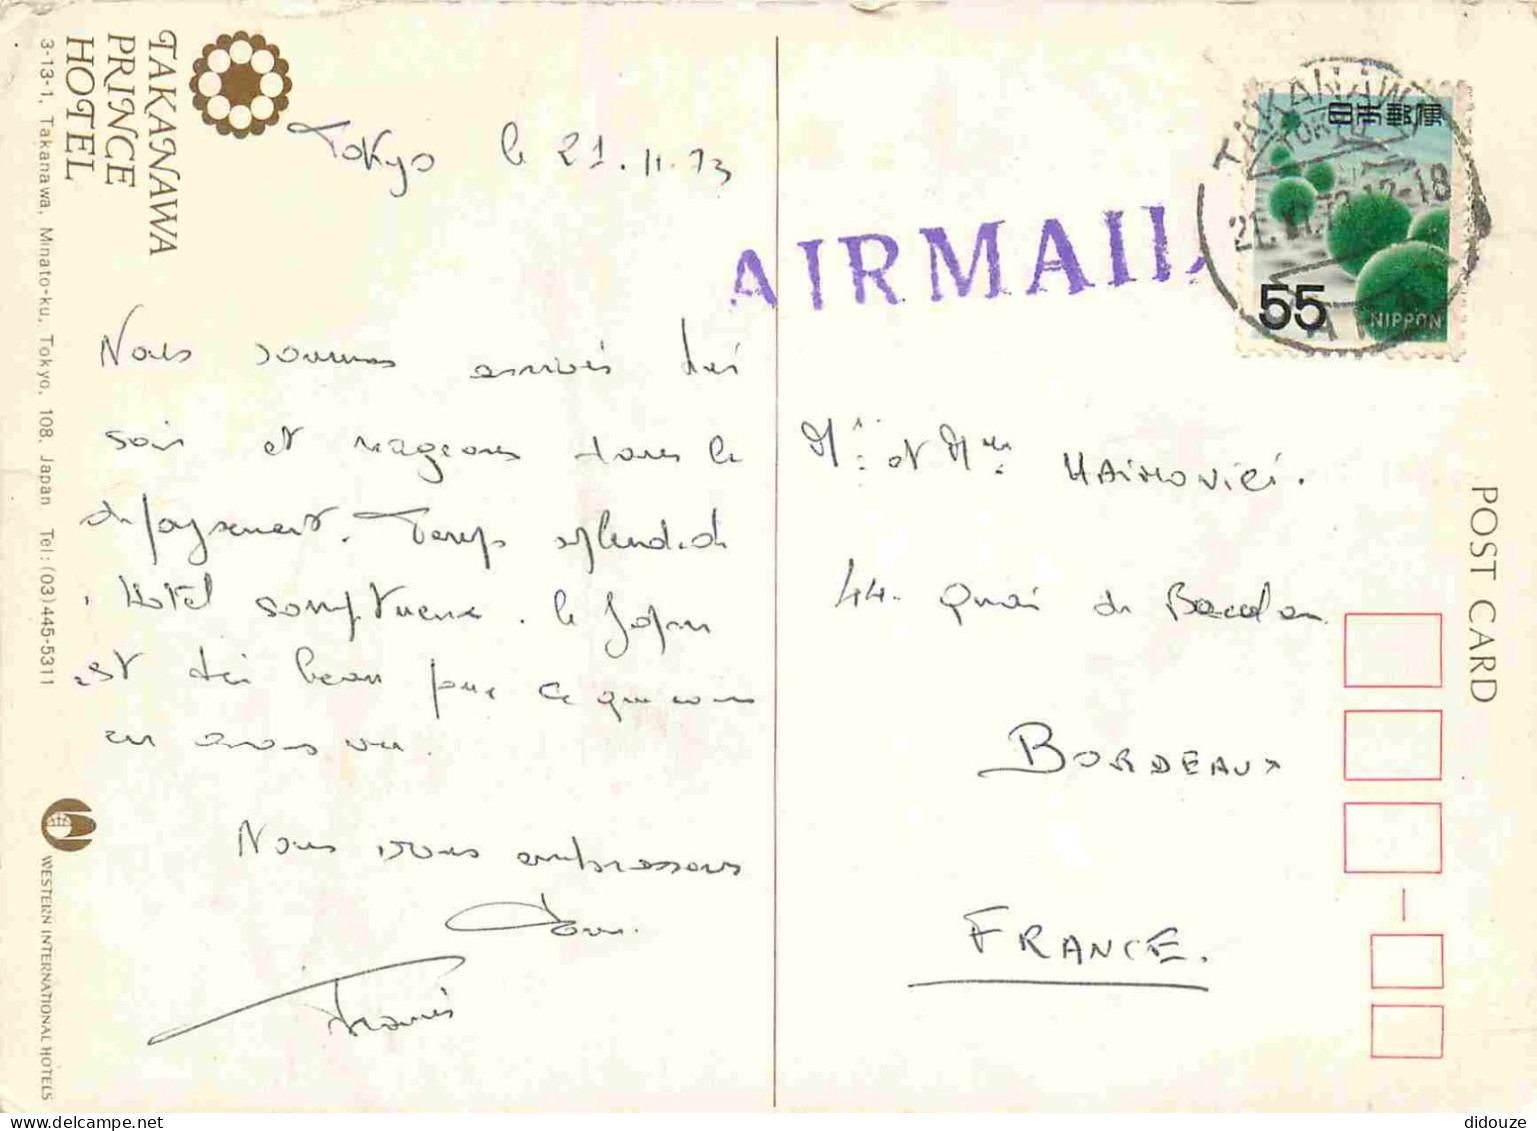 TAKANAWA
PRINCE
HOTEL
3-13-1, Takanawa, Minato-ku, Tokyo, 108, Japan Tel: (03) 445-5311
WESTERN INTERNATIONAL HOTELS
Tokyo le 21.11.73
Nous sommes arrivés hier
soir et nageons dans le
dépaysement. Temps splendide
. Hôtel somptueux. le Japon
est beau que ce que nous
en avons vu.
Nous vous embrassons
Tous.
Francis
AIRMAIL
TAKANAWA
TOKYO
21. XI. 73. 12-18
JAPAN
日本郵便
55
NIPPON
Mr et Mme HAIMOVICI.
44. Quai de Bacalan
BORDEAUX
FRANCE.
POST CARD
didouze
delcampe.net